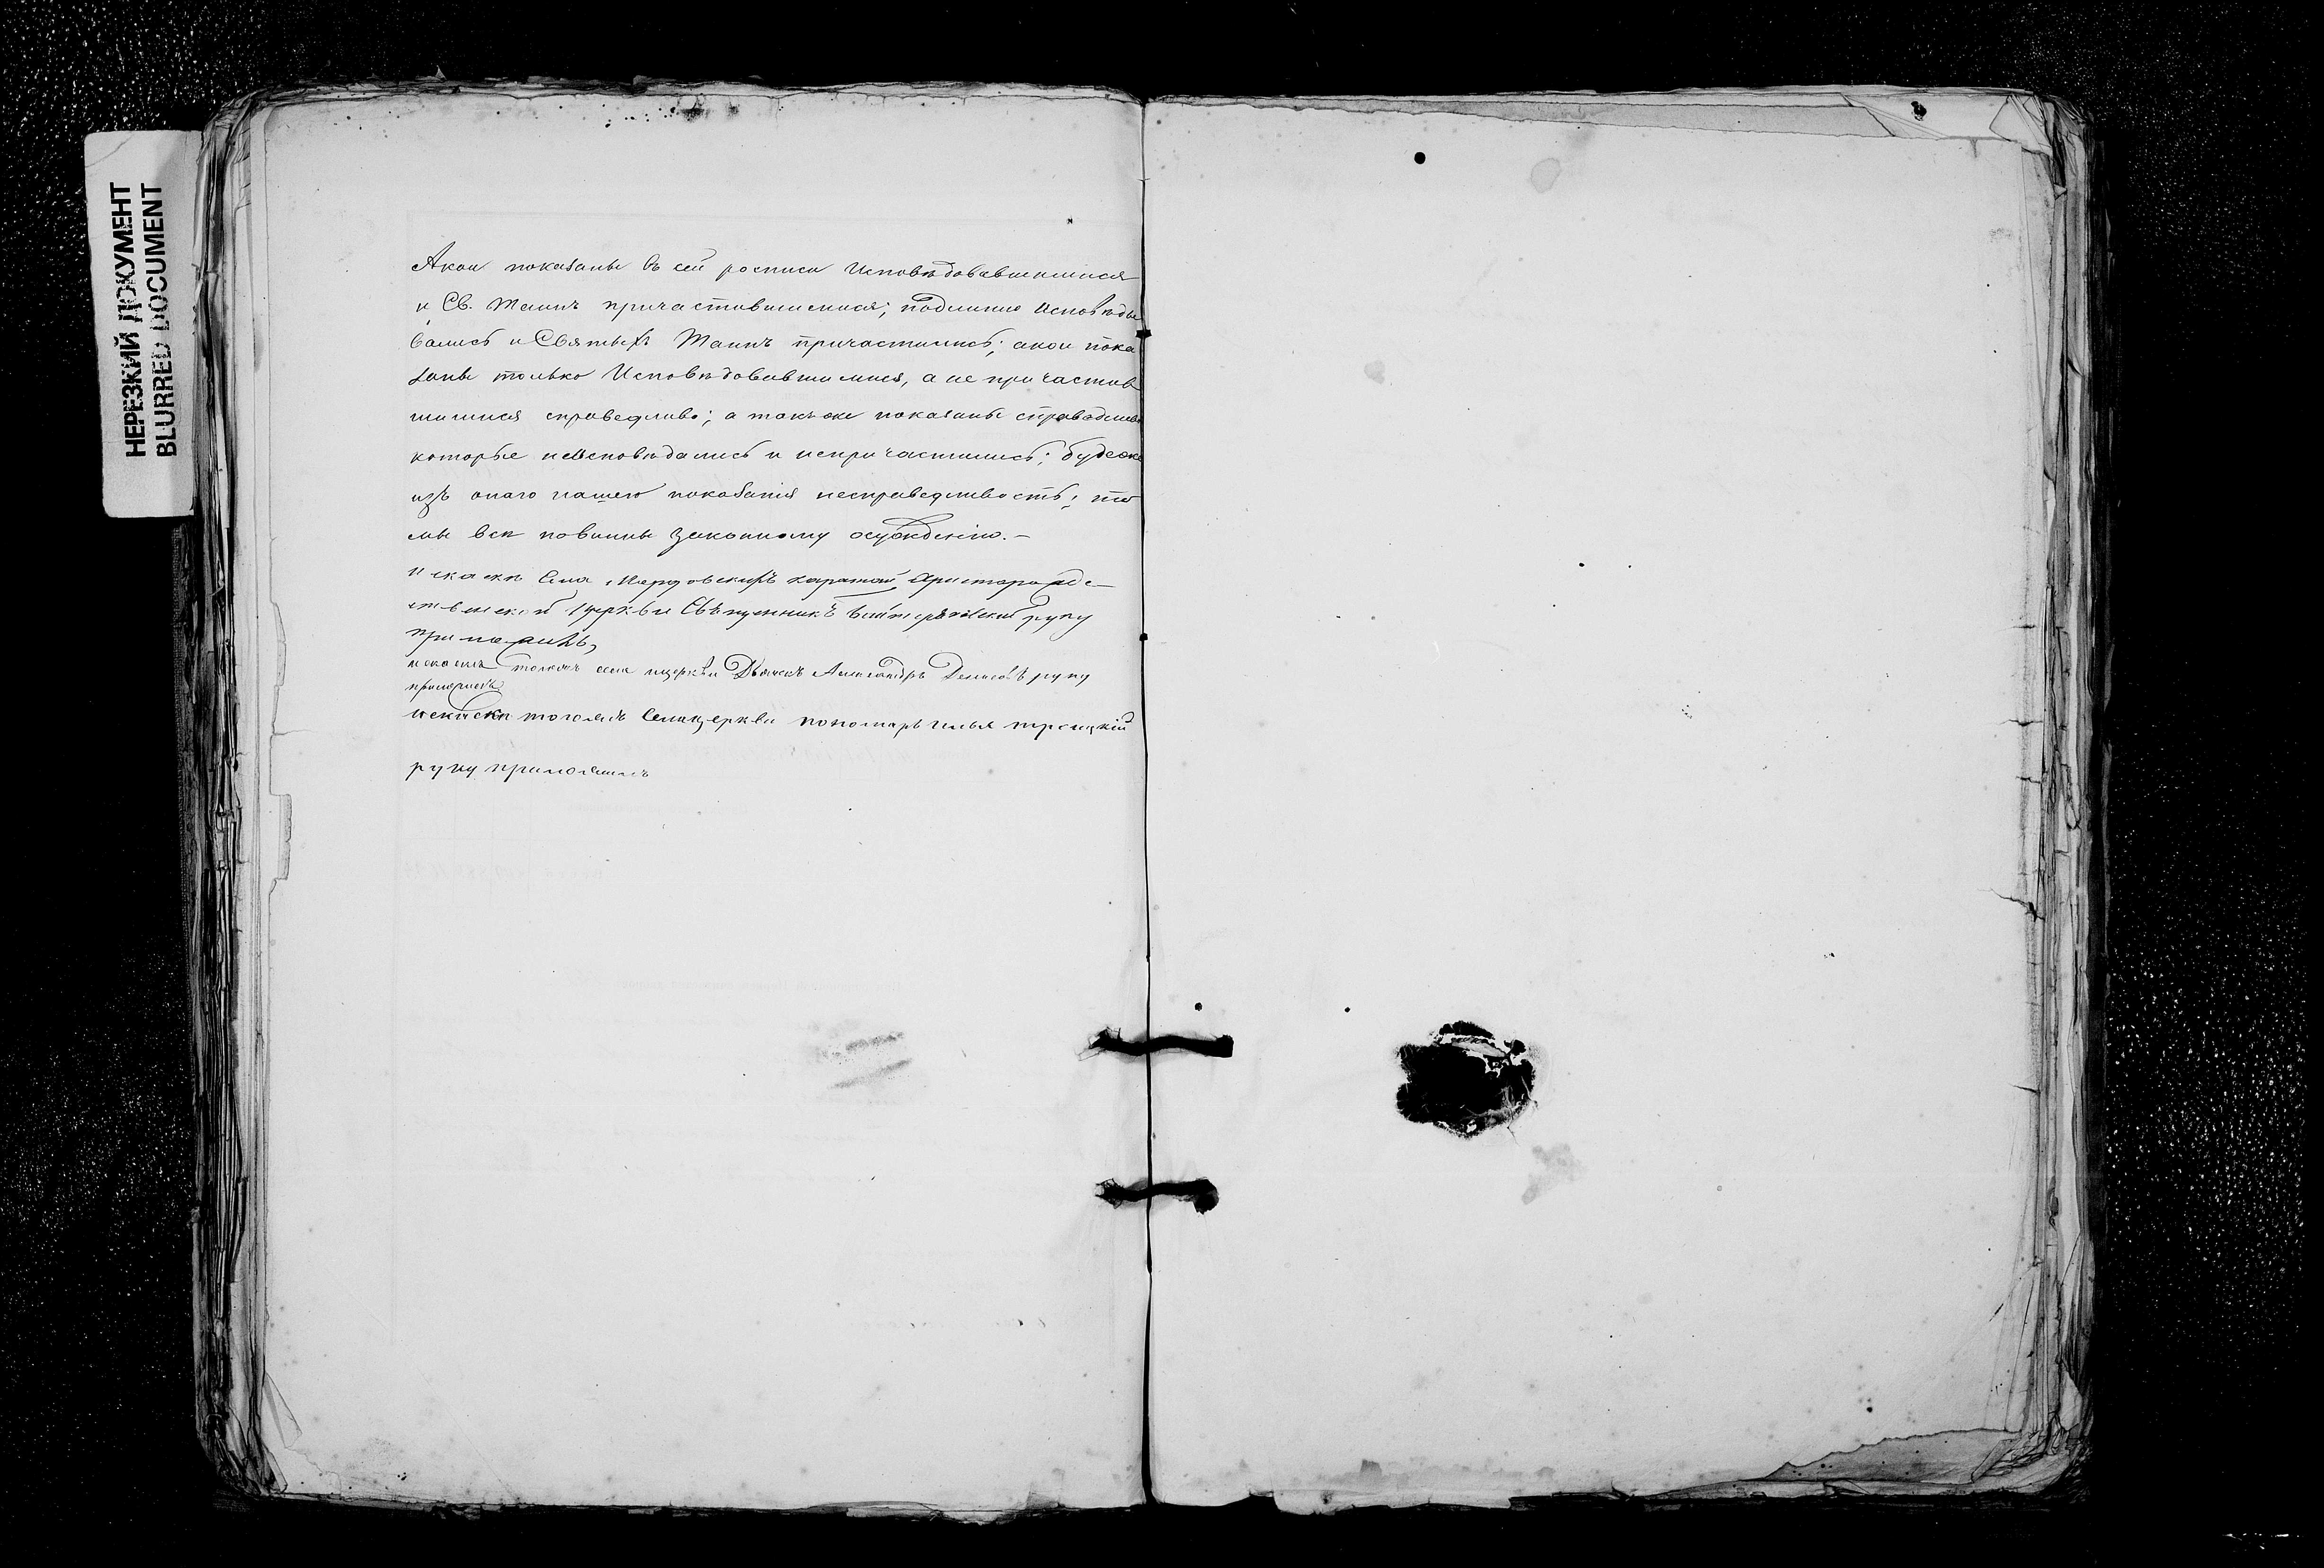 НЕРЕЗКИЙ ДОКУМЕНТ
BLURRED DOCUMENT
А кои показаны въ сей росписи Исповѣдовавшимися
и Св. Таинъ причастившимися; подлинно Исповѣды
вались и Святыхъ Таинъ причастились; а кои пока
заны только Исповѣдовавшимися, а не причастив
шимися справедливо; а также показаны справедливо
которые неИсповѣдались и непричастились; будеже
изъ онаго нашего показанія несправедливость; то
мы всѣ повинны законному осужденію.–
И скаскѣ Села Мордовскихъ каратай Христорожде–
ственской церкви Священникъ руку
приложилъ,
искаскѣ тогожъ села ицеркви Дьячекъ Александръ Денисовъ руку
приложилъ
искаскѣ тогожъ Селаицеркви пономарь Илья троицкій
руку приложилъ